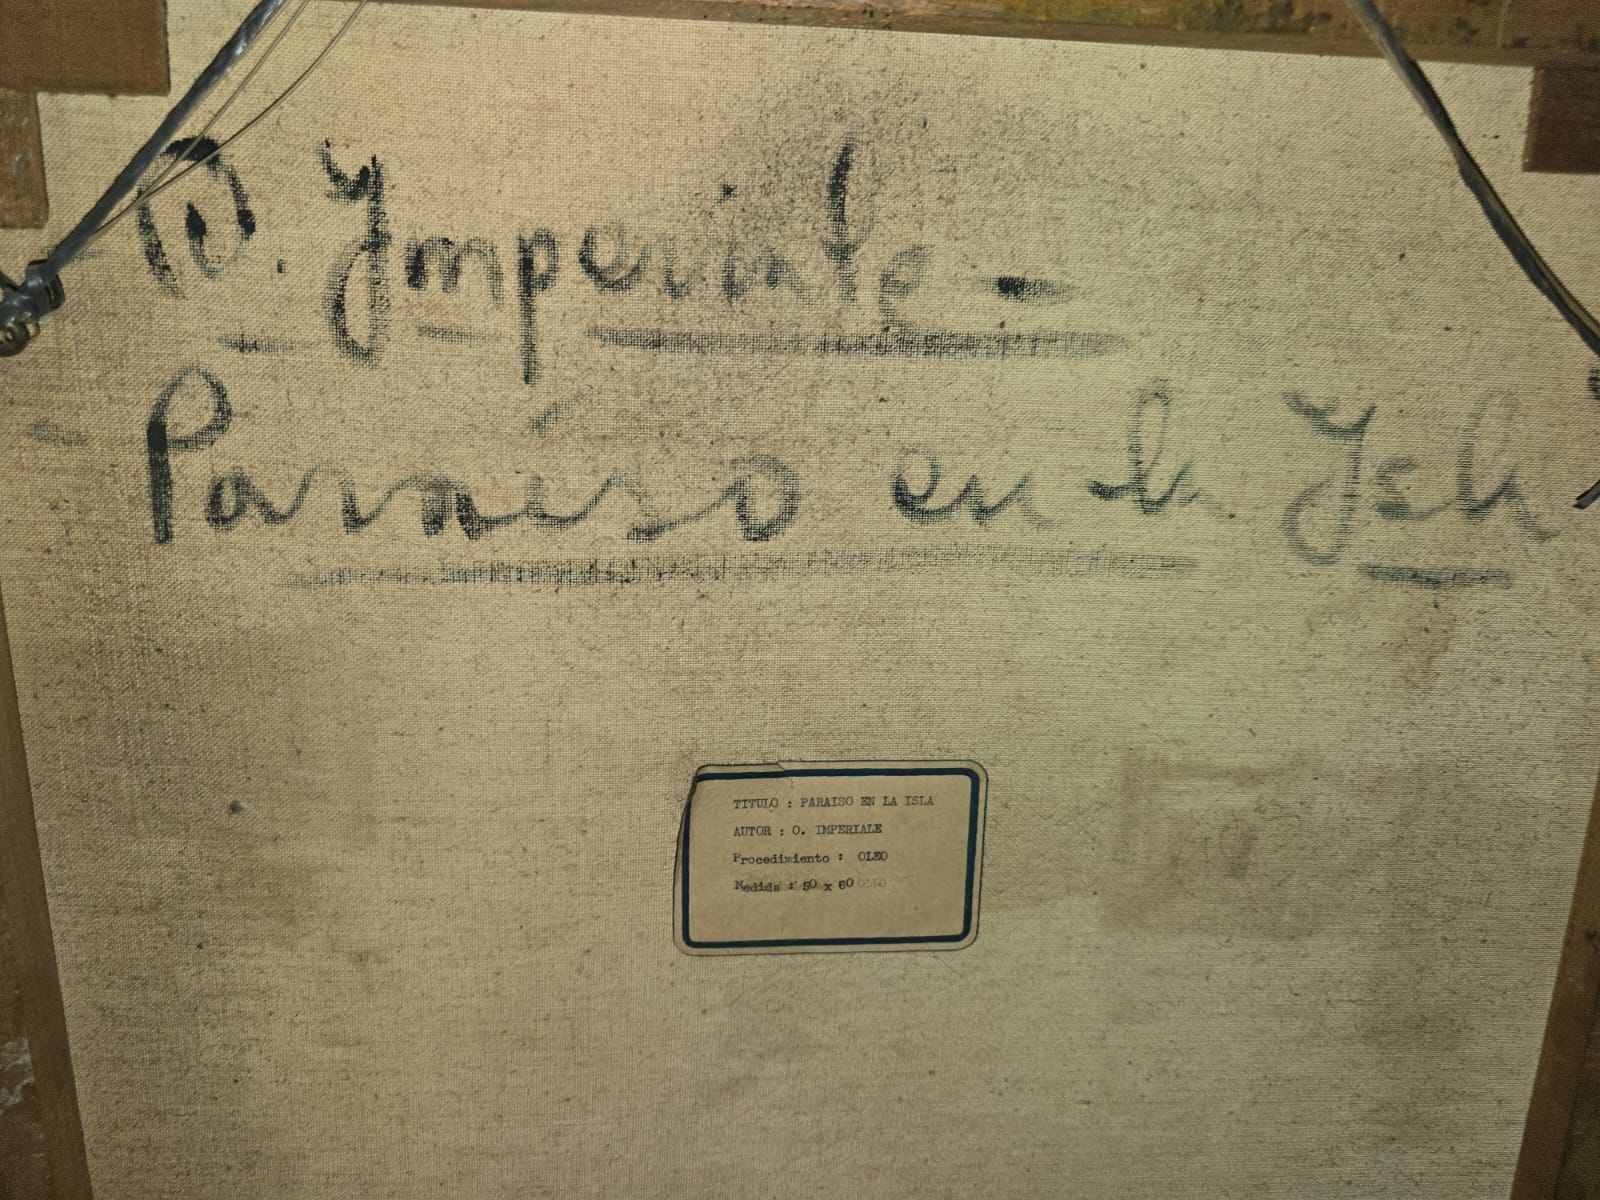 O. Imperiale -
Paraíso en la Isla
TITULO : PARAISO EN LA ISLA
AUTOR : O. IMPERIALE
Procedimiento : OLEO
Medida : 50 x 60